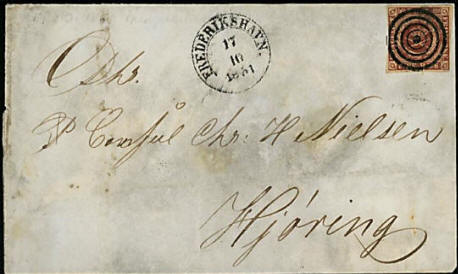 FREDERIKSHAVN.
17
10
1851
Hr.
Consul Chr: H Nielsen
Hjöring